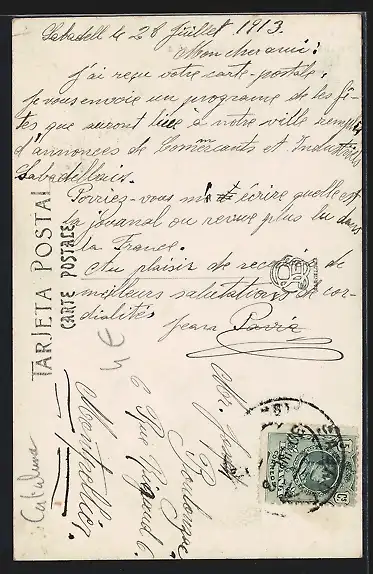 Sabadell le 28 Juillet 1913.
Mon cher ami:
J'ai reçu votre carte-postale.
Je vous envoie un programe de les fê-
tes que auront lieu à notre ville remplis
d'annonces de Comerçants et Industriels
Sabadellais.
Pourriez-vous m'écrire quelle est
la jouanal ou revue plus lu dans
la France.
Au plaisir de recevoir de
meilleurs salutations de cor-
dialités
Jean
TARJETA POSTAL
CARTE POSTALE
4 €
Mr.
Toulouse
6 Rue Rigaud 6.
Montpellier
Cataluna
CORREOS